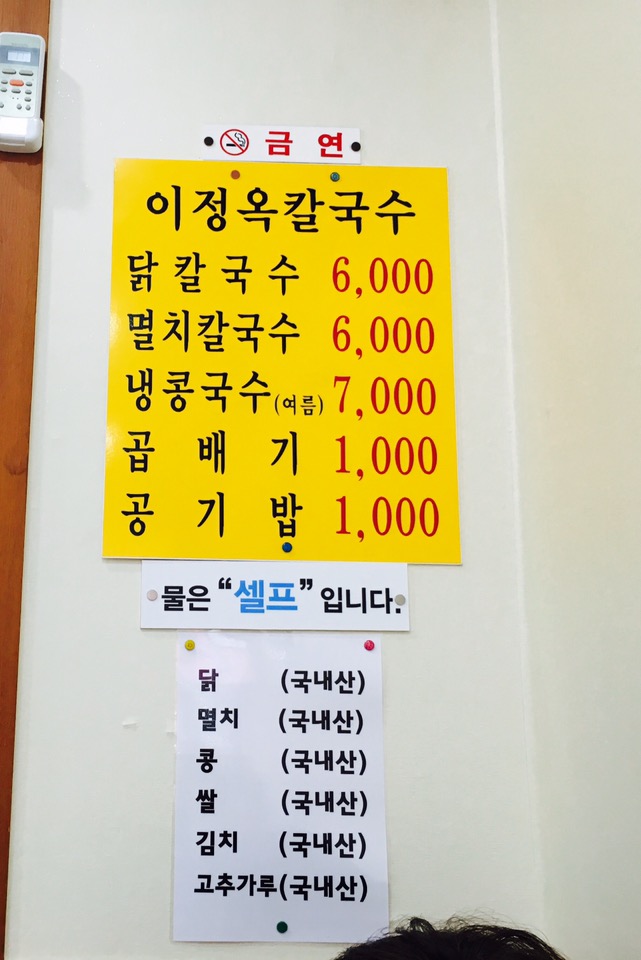 금 연
이정옥칼국수
닭 칼 국 수 6,000
멸치칼국수 6,000
냉콩국수(여름) 7,000
곱 배 기 1,000
공 기 밥 1,000
물은 "셀프" 입니다.
닭 (국내산)
멸치 (국내산)
콩 (국내산)
쌀 (국내산)
김치 (국내산)
고추가루(국내산)